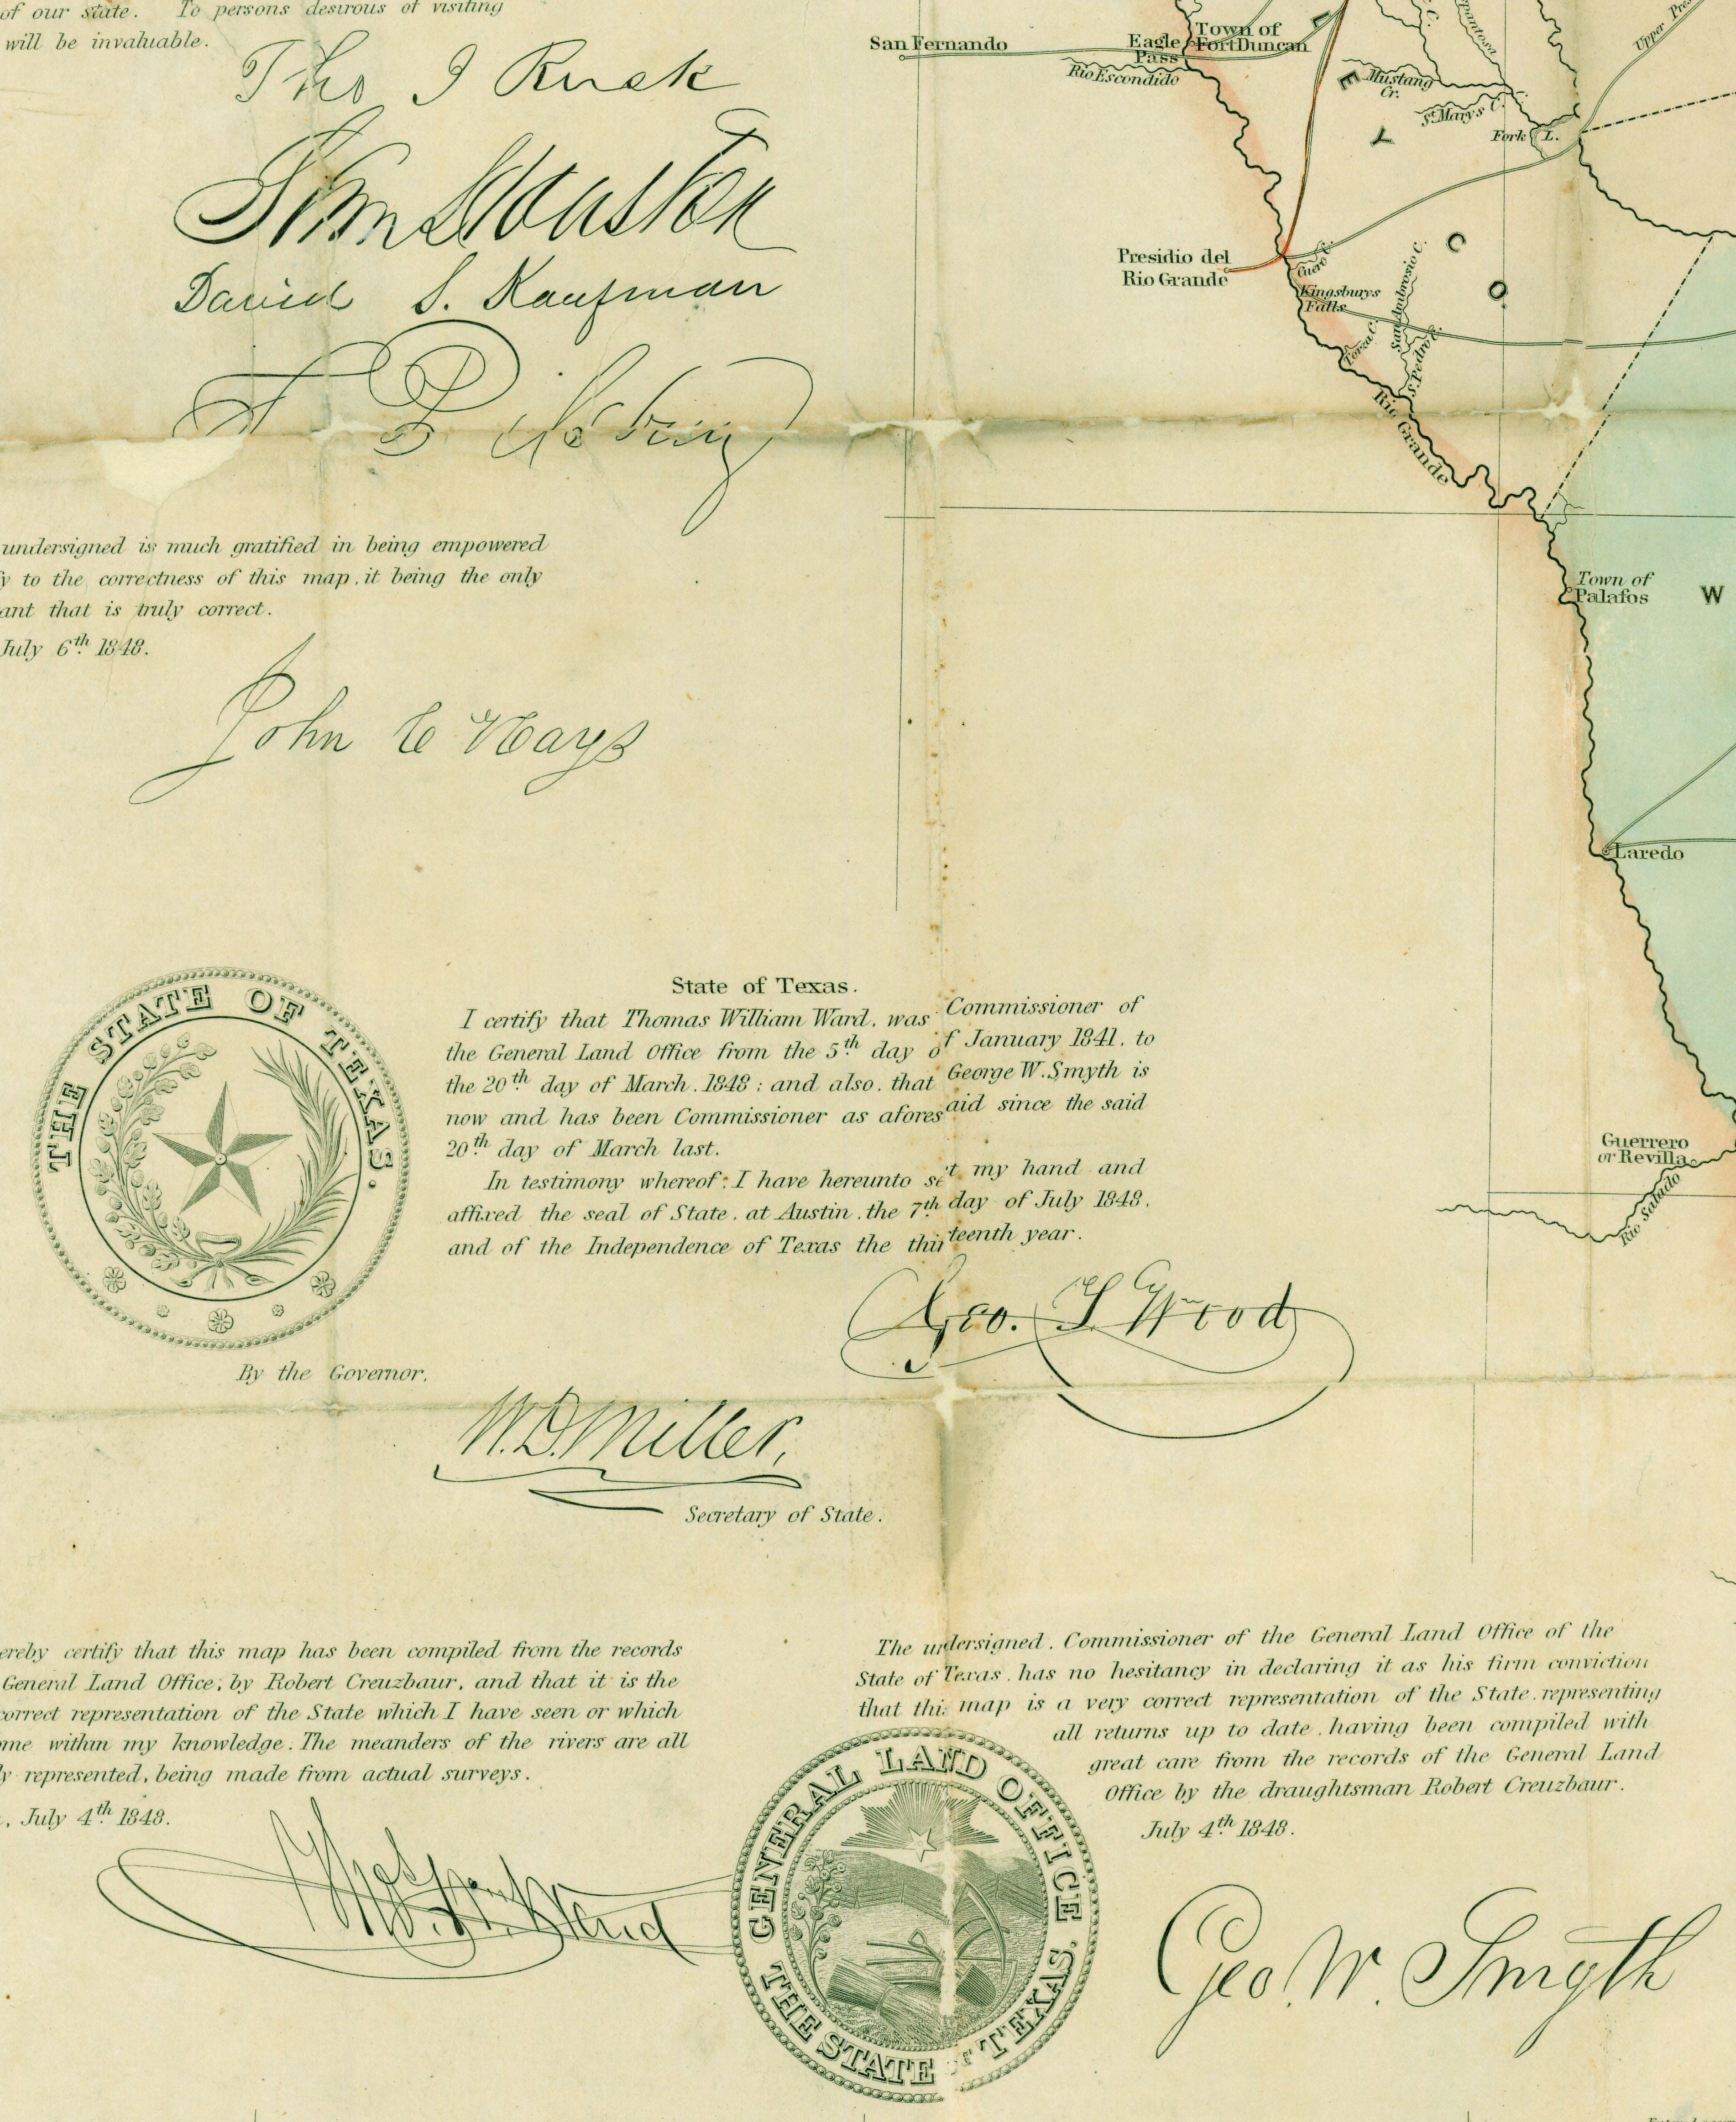 of our state. To persons desirous of visiting
will be invaluable.
Tho J Rusk
Sam Houston
David S. Kaufman
undersigned is much gratified in being empowered
to the correctness of this map, it being the only
ant that is truly correct.
July 6th 1848.
John C Hays
THE STATE OF TEXAS.
State of Texas.
I certify that Thomas William Ward, was Commissioner of
the General Land Office from the 5th day of January 1841, to
the 20th day of March, 1848; and also, that George W. Smyth is
now and has been Commissioner as aforesaid since the said
20th day of March last.
In testimony whereof; I have hereunto set my hand and
affixed the seal of State, at Austin, the 7th day of July 1848,
and of the Independence of Texas the thirteenth year.
Geo. T Wood
By the Governor.
W.D. Miller,
Secretary of State.
ereby certify that this map has been compiled from the records
General Land Office, by Robert Creuzbaur, and that it is the
correct representation of the State which I have seen or which
me within my knowledge. The meanders of the rivers are all
y represented, being made from actual surveys.
, July 4th 1848.
Thos. Wm. Ward
GENERAL LAND OFFICE
THE STATE OF TEXAS.
The undersigned, Commissioner of the General Land Office of the
State of Texas, has no hesitancy in declaring it as his firm conviction
that this map is a very correct representation of the State, representing
all returns up to date, having been compiled with
great care from the records of the General Land
Office by the draughtsman Robert Creuzbaur.
July 4th 1848.
Geo. W. Smyth
San Fernando
Eagle Pass
Town of
Fort Duncan
Rio Escondido
Mustang
Cr.
St. Marys C.
Fork L.
Upper Pres
E
Y
C
O
Presidio del
Rio Grande
Cuero C.
Kingsburys
Falls
San Ambrosio C.
S. Pedro C.
Rio Grande
Town of
Palafos
W
Laredo
Guerrero
or Revilla
Rio Salado